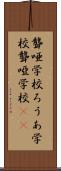 聾唖学校ろうあ学
校聾唖学校